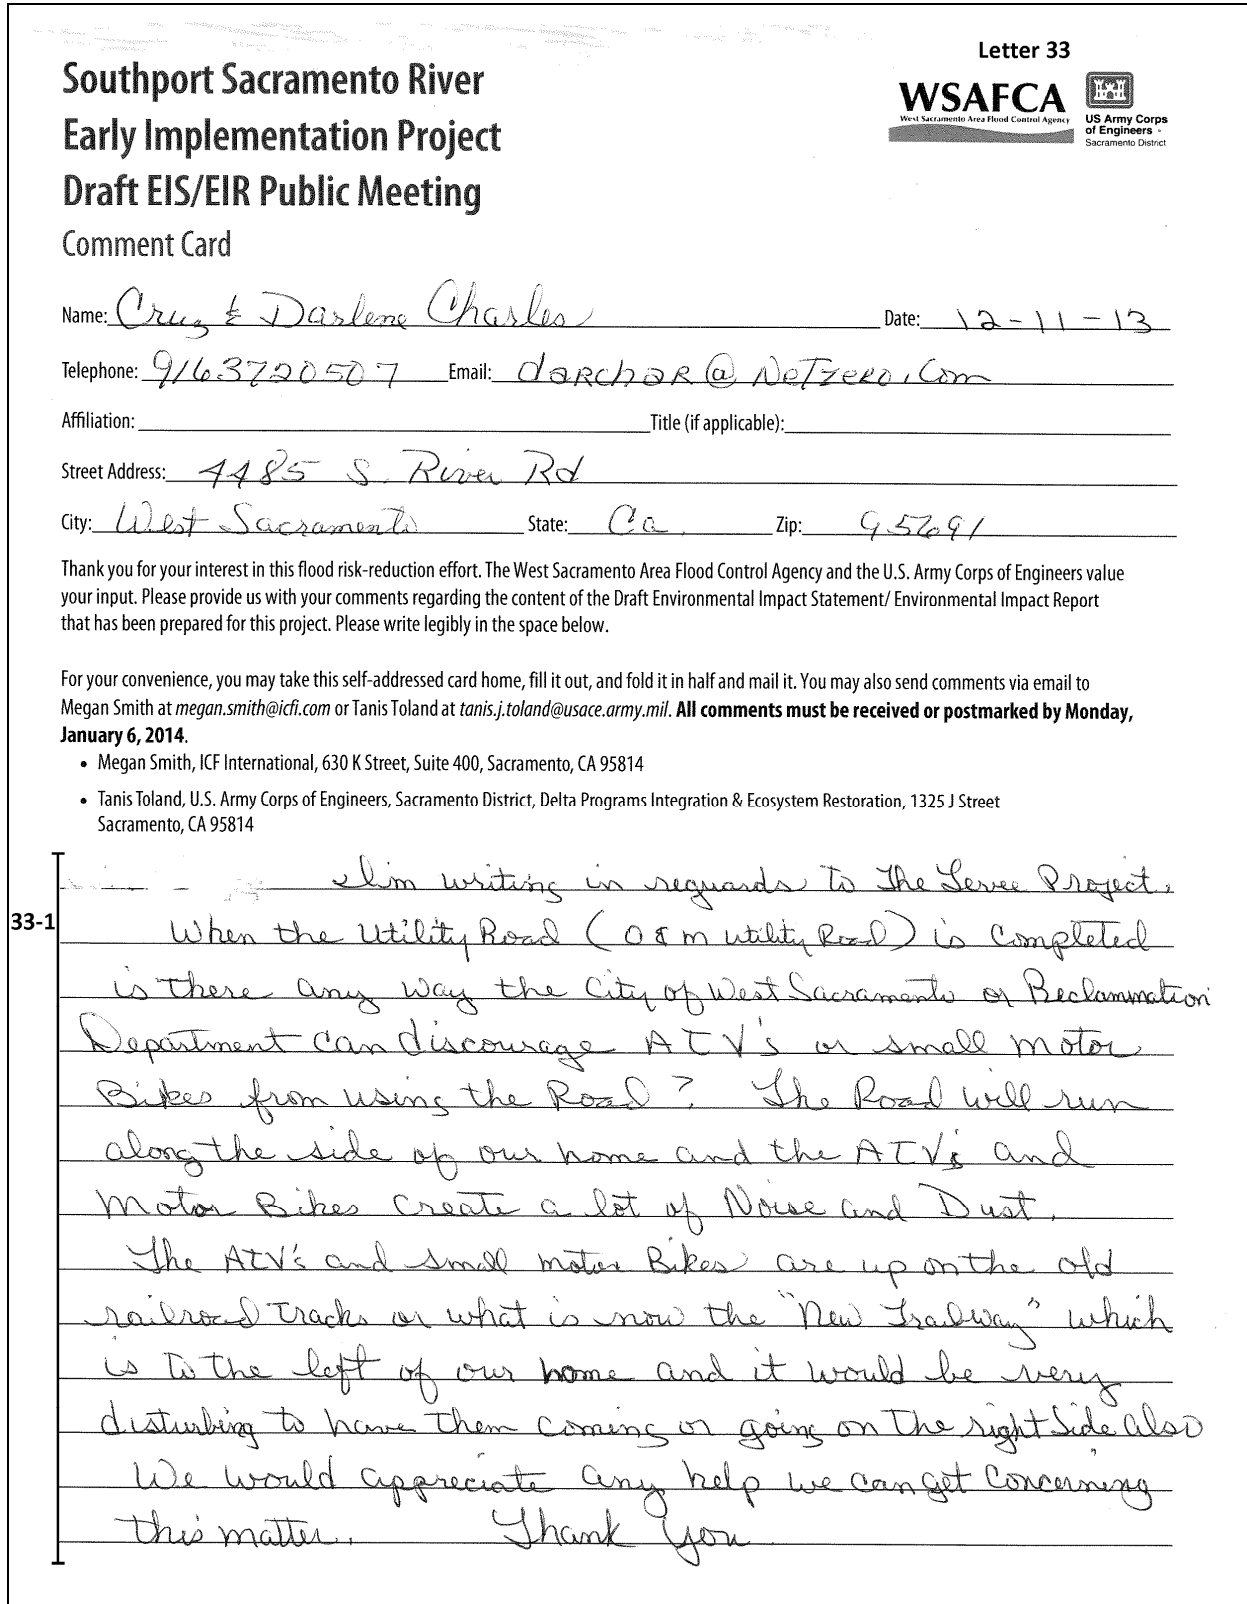 Letter 33
Southport Sacramento River
Early Implementation Project
Draft EIS/EIR Public Meeting
Comment Card
WSAFCA
West Sacramento Area Flood Control Agency
US Army Corps
of Engineers
Sacramento District
Name: Cruz & Darlene Charles Date: 12-11-13
Telephone: 9163720507 Email: darchar@Netzero.com
Affiliation: Title (if applicable):
Street Address: 4485 S. River Rd
City: West Sacramento State: Ca. Zip: 95691
Thank you for your interest in this flood risk-reduction effort. The West Sacramento Area Flood Control Agency and the U.S. Army Corps of Engineers value
your input. Please provide us with your comments regarding the content of the Draft Environmental Impact Statement/ Environmental Impact Report
that has been prepared for this project. Please write legibly in the space below.
For your convenience, you may take this self-addressed card home, fill it out, and fold it in half and mail it. You may also send comments via email to
Megan Smith at megan.smith@icfi.com or Tanis Toland at tanis.j.toland@usace.army.mil. All comments must be received or postmarked by Monday,
January 6, 2014.
• Megan Smith, ICF International, 630 K Street, Suite 400, Sacramento, CA 95814
• Tanis Toland, U.S. Army Corps of Engineers, Sacramento District, Delta Programs Integration & Ecosystem Restoration, 1325 J Street
Sacramento, CA 95814
I'm writing in reguards to The Levee Project.
33-1
When the Utility Road (O & M utility Road) is completed
is there any way the City of West Sacramento or Reclammation
Department can discourage ATV's or small motor
Bikes from using the Road? The Road will run
along the side of our home and the ATV's and
Motor Bikes create a lot of Noise and Dust.
The ATV's and small motor Bikes are up on the old
railroad tracks or what is now the "New Trailway" which
is to the left of our home and it would be very
disturbing to have them coming or going on the right side also
We would appreciate any help we can get concerning
this matter. Thank You